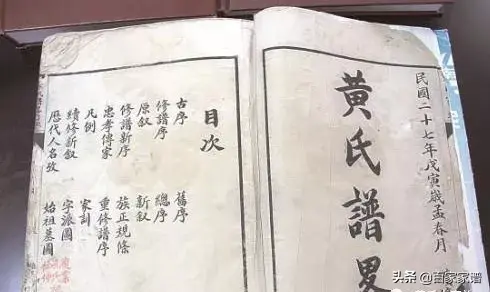 民國二十七年戊寅歲孟春月
黃氏譜畧
目次
古序
舊序
修譜序
總序
原叙
新叙
修譜新序
族正規條
忠孝傳家
重修譜序
凡例
家訓
續修新叙
字派圖
歷代人名攷
始祖墓圖
头条 @百家家谱